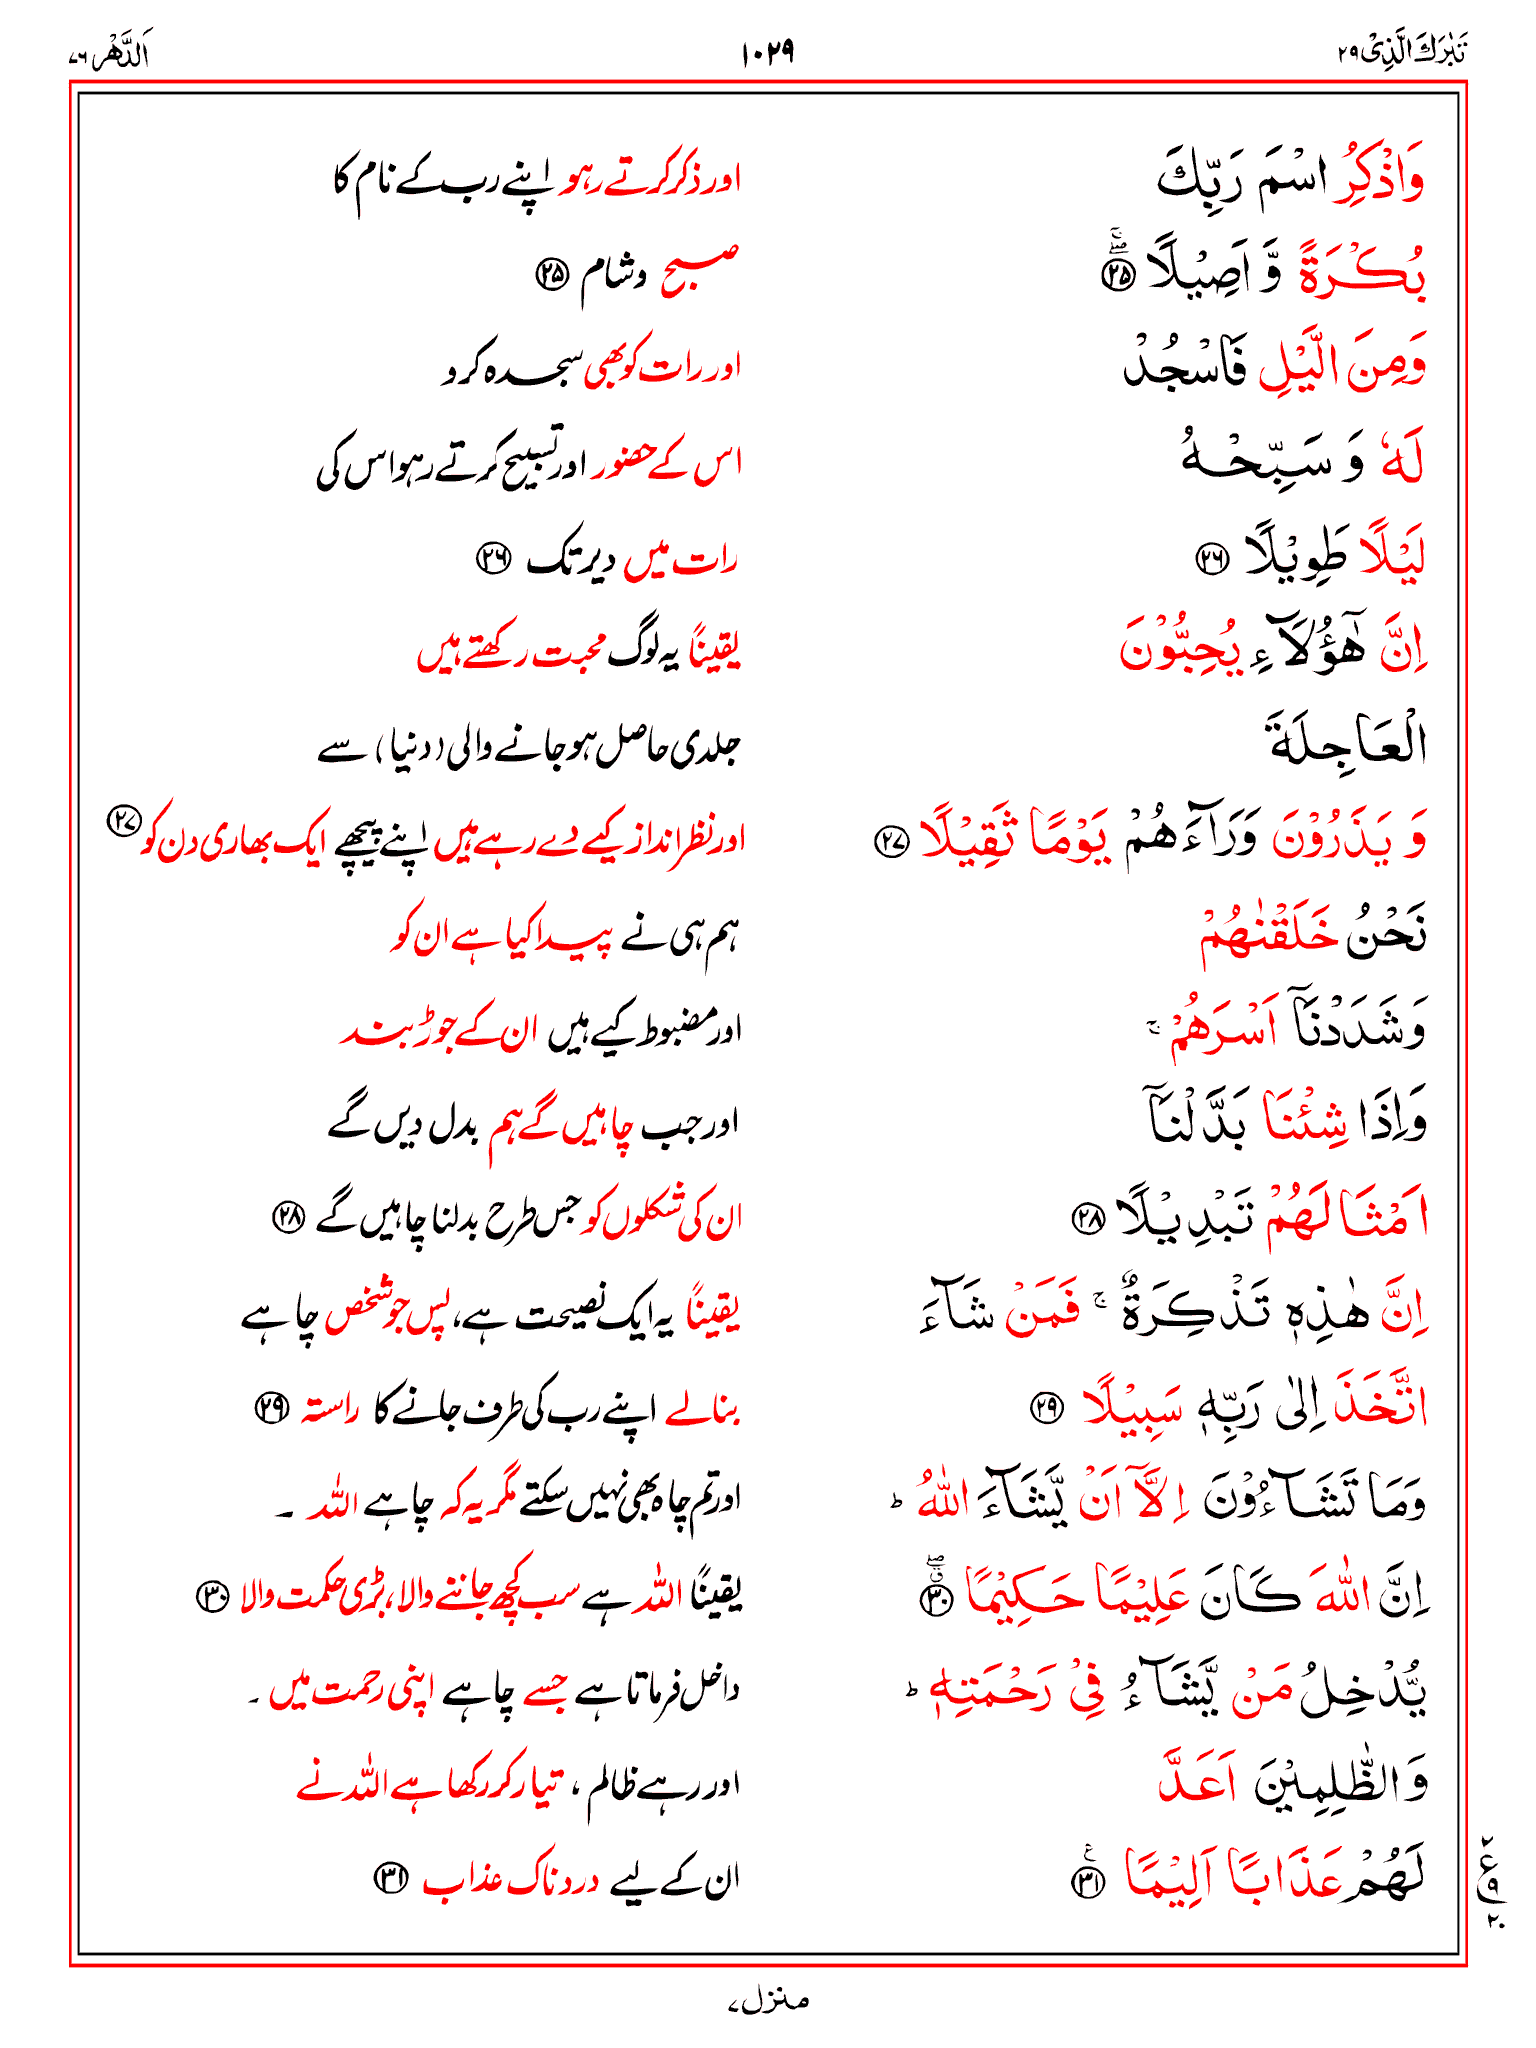 تَبٰرَكَ الَّذِیْ ۲۹ ۱۰۲۹ اَلدَّهْر ۷۶
وَاذْكُرِ اسْمَ رَبِّكَ اور ذکر کرتے رہو اپنے رب کے نام کا
بُكْرَةً وَّ اَصِیْلًا ۲۵ صبح و شام ۲۵
وَمِنَ الَّیْلِ فَاسْجُدْ اور رات کو بھی سجدہ کرو
لَهٗ وَ سَبِّحْهُ اس کے حضور اور تسبیح کرتے رہو اس کی
لَیْلًا طَوِیْلًا ۲۶ رات میں دیر تک ۲۶
اِنَّ هٰۤؤُلَآءِ یُحِبُّوْنَ یقیناً یہ لوگ محبت رکھتے ہیں
الْعَاجِلَةَ جلدی حاصل ہو جانے والی (دنیا) سے
وَ یَذَرُوْنَ وَرَآءَهُمْ یَوْمًا ثَقِیْلًا ۲۷ اور نظر انداز کیے دے رہے ہیں اپنے پیچھے ایک بھاری دن کو ۲۷
نَحْنُ خَلَقْنٰهُمْ ہم ہی نے پیدا کیا ہے ان کو
وَشَدَدْنَاۤ اَسْرَهُمْ ۚ اور مضبوط کیے ہیں ان کے جوڑ بند
وَاِذَا شِئْنَا بَدَّلْنَاۤ اور جب چاہیں گے ہم بدل دیں گے
اَمْثَالَهُمْ تَبْدِیْلًا ۲۸ ان کی شکلوں کو جس طرح بدلنا چاہیں گے ۲۸
اِنَّ هٰذِهٖ تَذْكِرَةٌ ۚ فَمَنْ شَآءَ یقیناً یہ ایک نصیحت ہے، پس جو شخص چاہے
اتَّخَذَ اِلٰى رَبِّهٖ سَبِیْلًا ۲۹ بنالے اپنے رب کی طرف جانے کا راستہ ۲۹
وَمَا تَشَآءُوْنَ اِلَّاۤ اَنْ یَّشَآءَ اللّٰهُ ؕ اور تم چاہ بھی نہیں سکتے مگر یہ کہ چاہے اللہ ۔
اِنَّ اللّٰهَ كَانَ عَلِیْمًا حَكِیْمًا ۳۰ یقیناً اللہ ہے سب کچھ جاننے والا، بڑی حکمت والا ۳۰
یُّدْخِلُ مَنْ یَّشَآءُ فِیْ رَحْمَتِهٖ ؕ داخل فرماتا ہے جسے چاہے اپنی رحمت میں ۔
وَالظّٰلِمِیْنَ اَعَدَّ اور رہے ظالم ، تیار کر رکھا ہے اللہ نے
لَهُمْ عَذَابًا اَلِیْمًا ۳۱ ان کے لیے دردناک عذاب ۳۱
۲
ع ۹
۲۰
منزل ۷